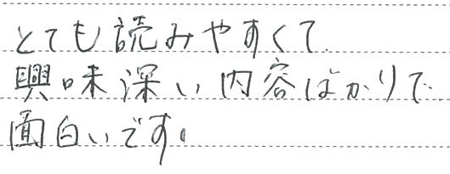 とても読みやすくて
興味深い内容ばかりで
面白いです。